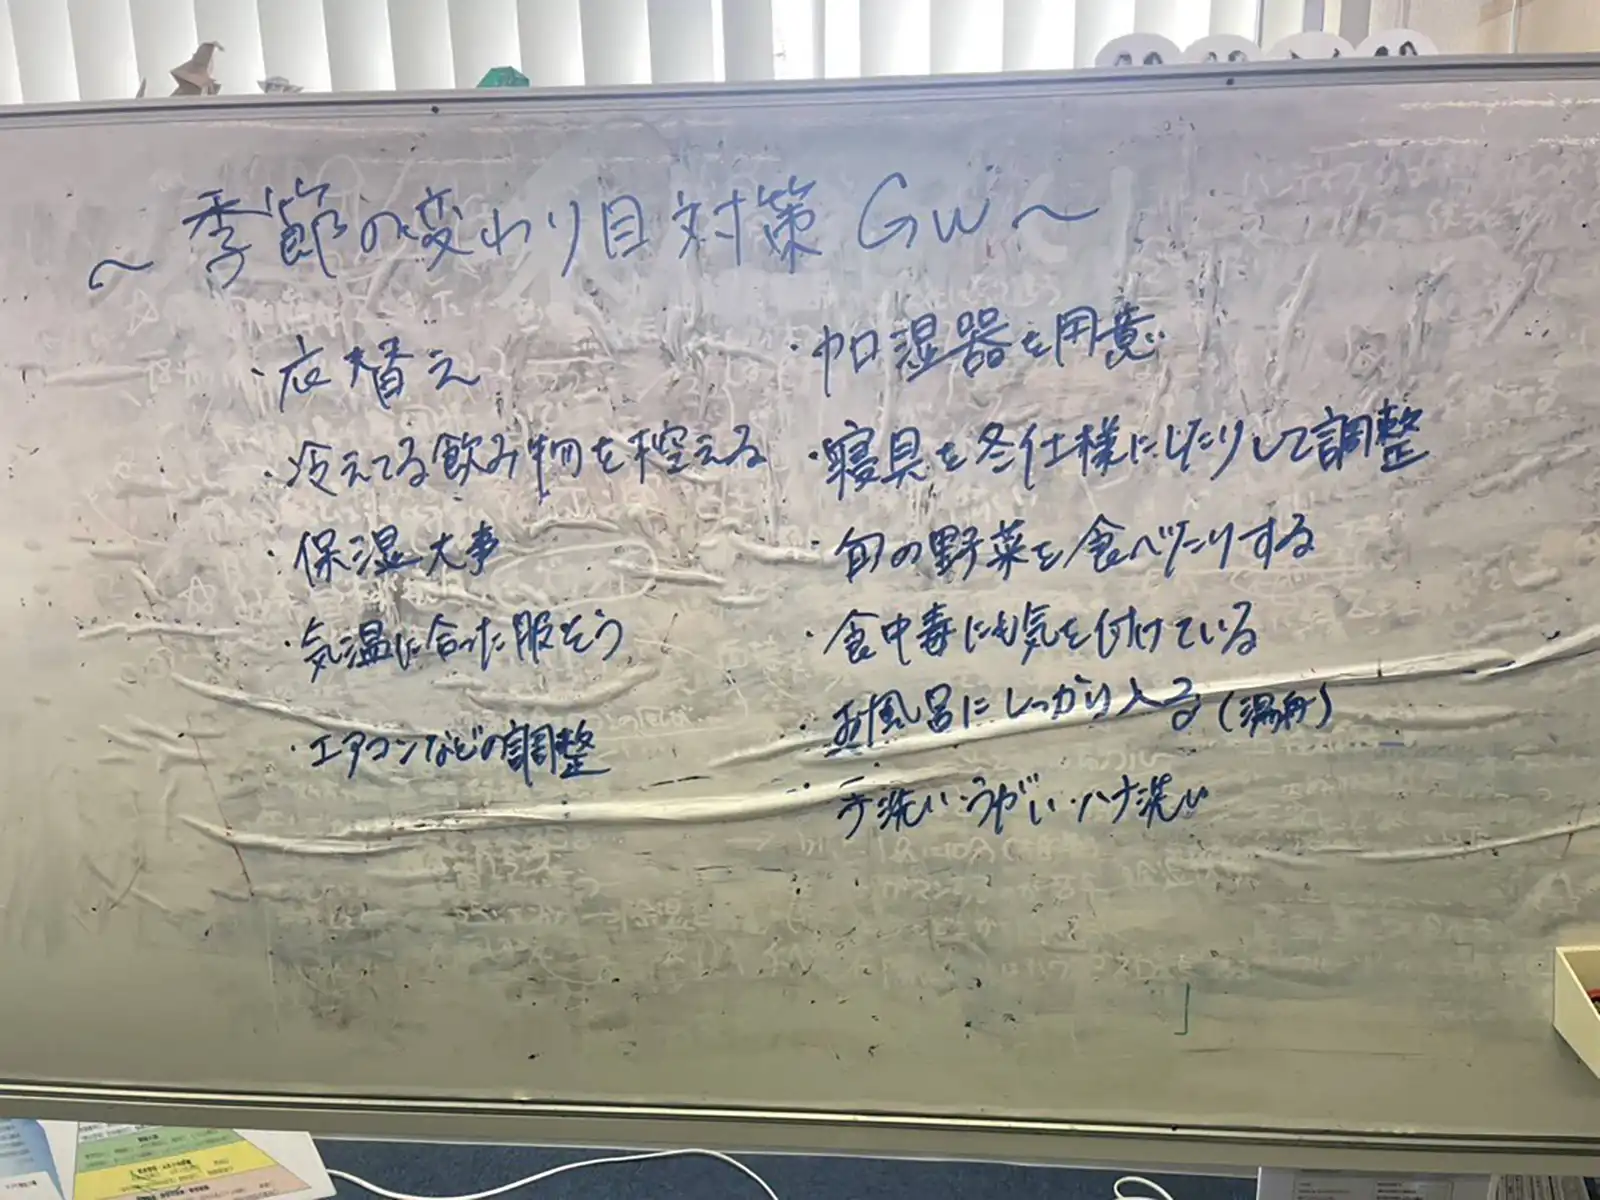 ～季節の変わり目対策GW～
・衣替え
・冷えてる飲み物を控える
・保湿大事
・気温に合った服そう
・エアコンなどの調整
・加湿器を用意
・寝具を冬仕様にしたりして調整
・旬の野菜を食べたりする
・食中毒にも気を付けている
・お風呂にしっかり入る(湯舟)
・手洗い・うがい・ハナ洗い